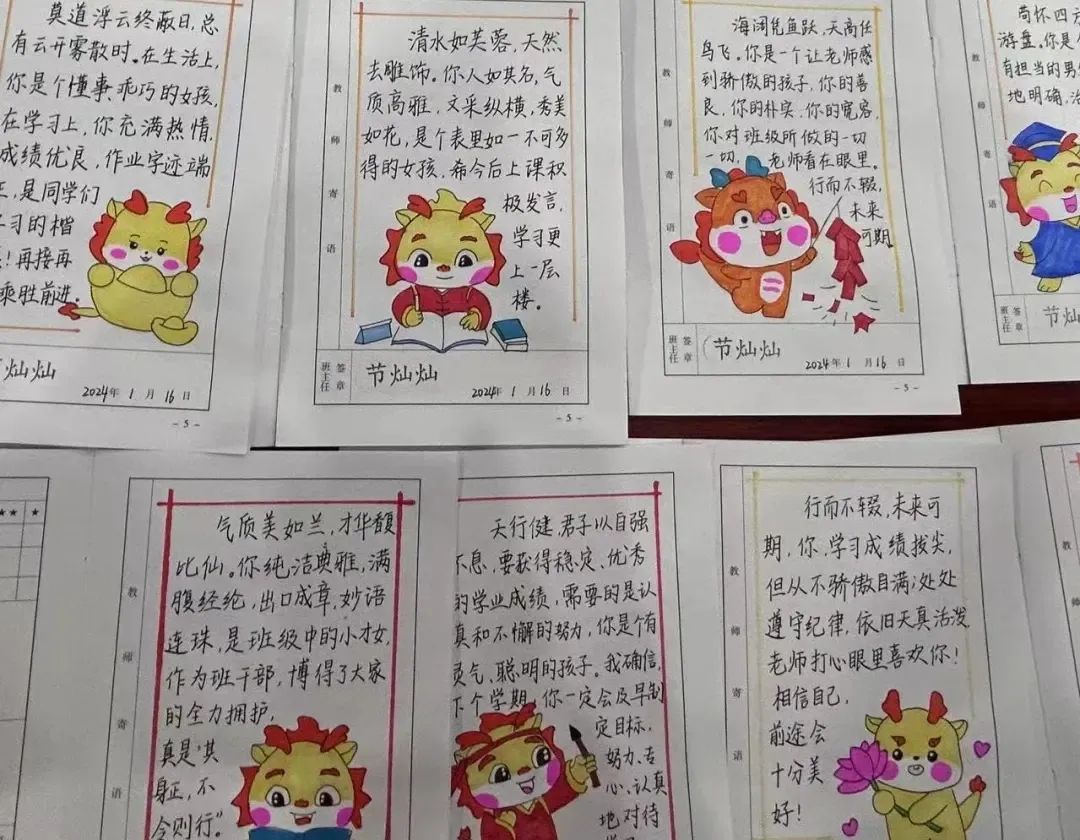 莫道浮云终蔽日,总
有云开雾散时。在生活上,
你是个懂事、乖巧的女孩,
在学习上,你充满热情,
成绩优良,作业字迹端
正,是同学们
学习的楷
!再接再
乘胜前进。
节灿灿
2024年1月16日
清水如芙蓉,天然
去雕饰。你人如其名,气
质高雅,文采纵横,秀美
如花,是个表里如一不可多
得的女孩,希今后上课积
极发言,
学习更
上一层
楼。
教师寄语
班主任签章
节灿灿
2024年1月16日
-5-
海阔凭鱼跃,天高任
鸟飞。你是一个让老师感
到骄傲的孩子,你的善
良,你的朴实,你的宽容,
你对班级所做的一切
一切,老师看在眼里。
行而不辍,
未来
可期
教师寄语
班主任签章
节灿灿
2024年1月16日
-5-
苟怀四
游盘。你是
有担当的男
地明确,
教师寄语
班主任签章
节
-5-
气质美如兰,才华馥
比仙。你纯洁典雅,满
腹经纶,出口成章,妙语
连珠,是班级中的小才女,
作为班干部,博得了大家
的全力拥护,
真是“其
身正,不
令则行”
教师寄语
天行健,君子以自强
不息,要获得稳定、优秀
的学业成绩,需要的是认
真和不懈的努力,你是个有
灵气、聪明的孩子。我确信,
下个学期,你一定会及早制
定目标,
努力、专
心、认真
地对待
行而不辍,未来可
期,你,学习成绩拔尖,
但从不骄傲自满;处处
遵守纪律,依旧天真活泼,
老师打心眼里喜欢你!
相信自己,
前途会
十分美
好!
教师寄语